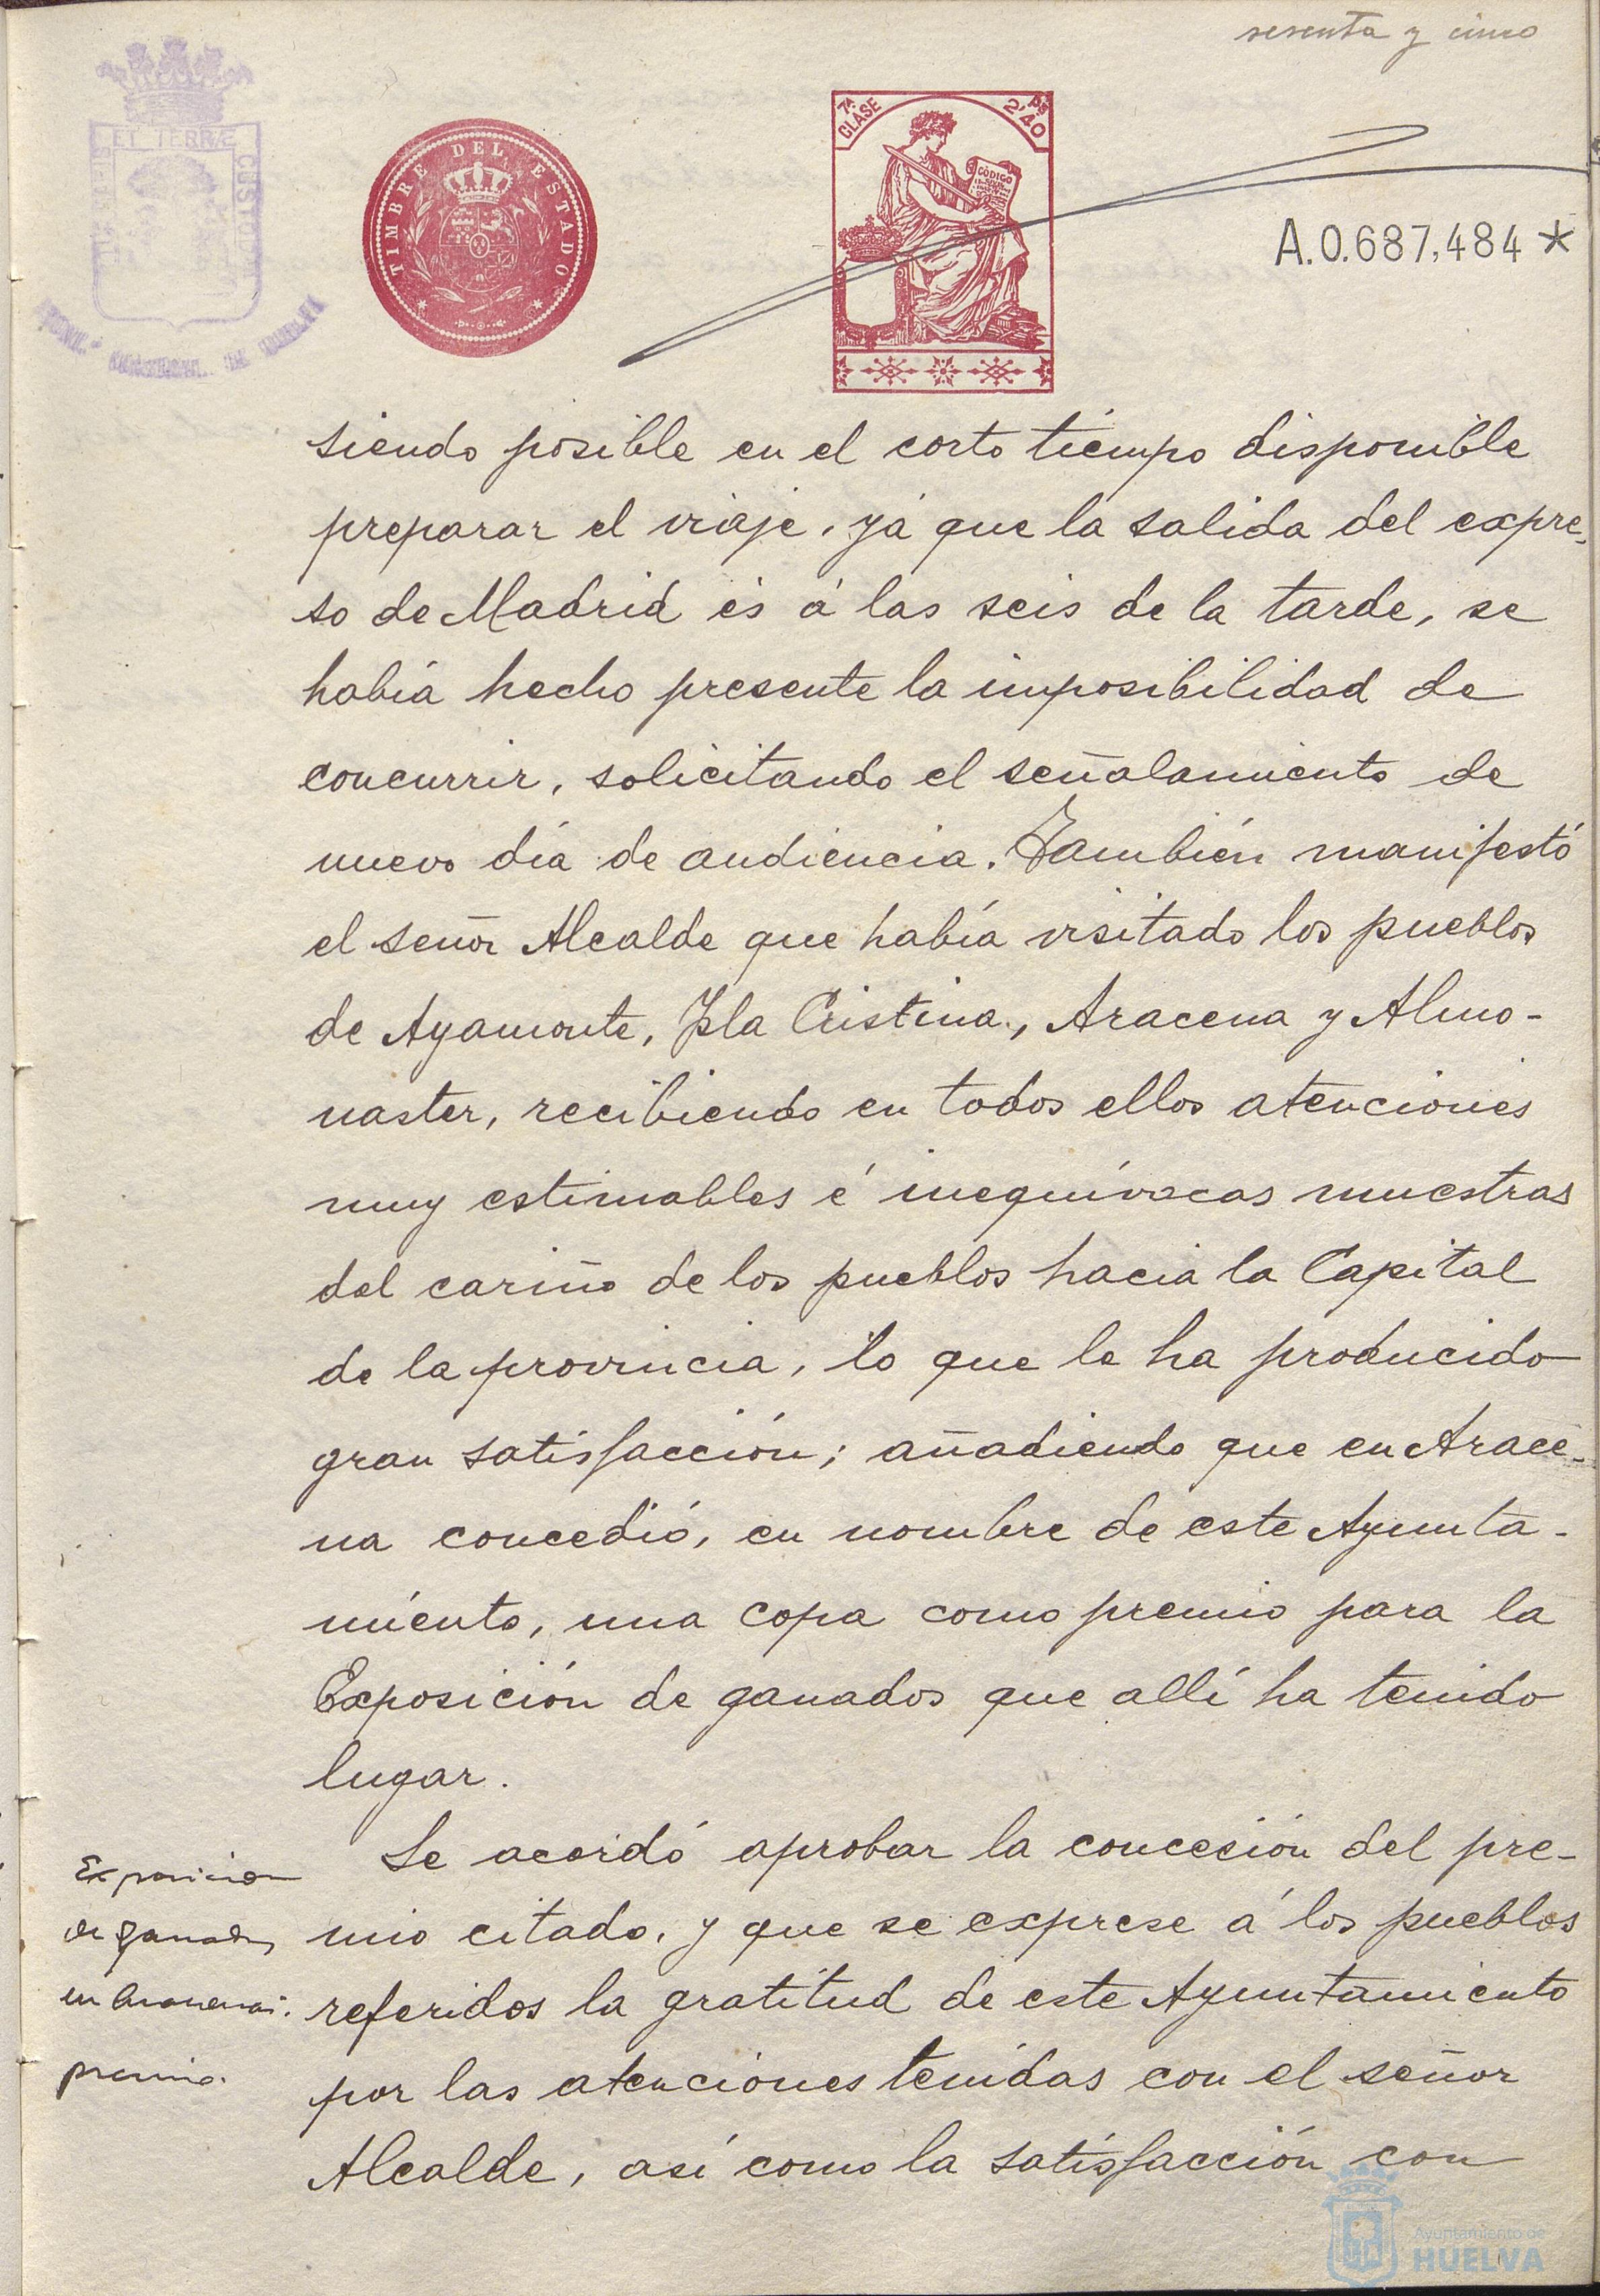 sesenta y cinco
ET TERRÆ
CUSTOD
TIMBRE DEL ESTADO
7ª CLASE
2'40 Pts
CÓDIGO
A.0.687,484 *
siendo posible en el corto tiempo disponible
preparar el viaje, yá que la salida del expre-
so de Madrid es á las seis de la tarde, se
había hecho presente la imposibilidad de
concurrir, solicitando el señalamiento de
nuevo día de audiencia. También manifestó
el señor Alcalde que había visitado los pueblos
de Ayamonte, Isla Cristina, Aracena y Almo-
naster, recibiendo en todos ellos atenciones
muy estimables é inequívocas muestras
del cariño de los pueblos hacia la Capital
de la provincia, lo que le ha producido
gran satisfacción; añadiendo que en Arace-
na concedió, en nombre de este Ayunta-
miento, una copa como premio para la
Exposición de ganados que allí ha tenido
lugar.
Se acordó aprobar la concesión del pre-
mio citado, y que se exprese á los pueblos
referidos la gratitud de este Ayuntamiento
por las atenciones tenidas con el señor
Alcalde, así como la satisfacción con
Exposicion
de ganados
en Aracena.
premio.
Ayuntamiento de
HUELVA